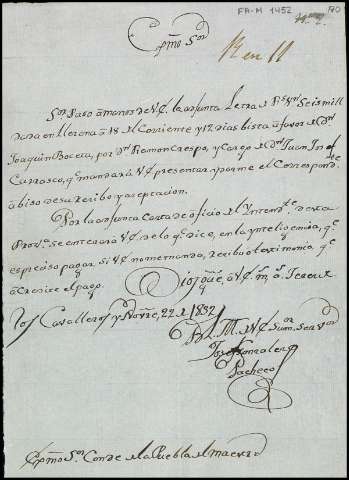 FR-M 1452 170
Nº 2.
Exmo Sor
R en 11
Sor Paso a manos de V.E. la adjunta Letra de Rs Von Seis mill
dada en Llerena a 18 del Corriente y 12 dias bista a favor de Dn
Joaquin Boceta, por Dn Ramon Crespo, y Cargo de Dn Juan Jos de
Carrasco, qe mandará V.E. presentar y por me el Correspondte
abiso de su recibo y aceptacion.
Por la adjunta Carta de oficio del Yntendte de esta
Prova se enterará V.E. de lo qe dice, en la ynteligencia, qe
es preciso pagar si V.E. no me manda, recibo o testimonio qe
acredite el pago.
Dios gue, a V.E. ms as Jerez
los Cavalleros y Novre, 22 de 1832
B. L. M. de V.E. su mor Servor
Josef Gonzalez
Pacheco
Exmo Sor Conde de la Puebla del Maestre